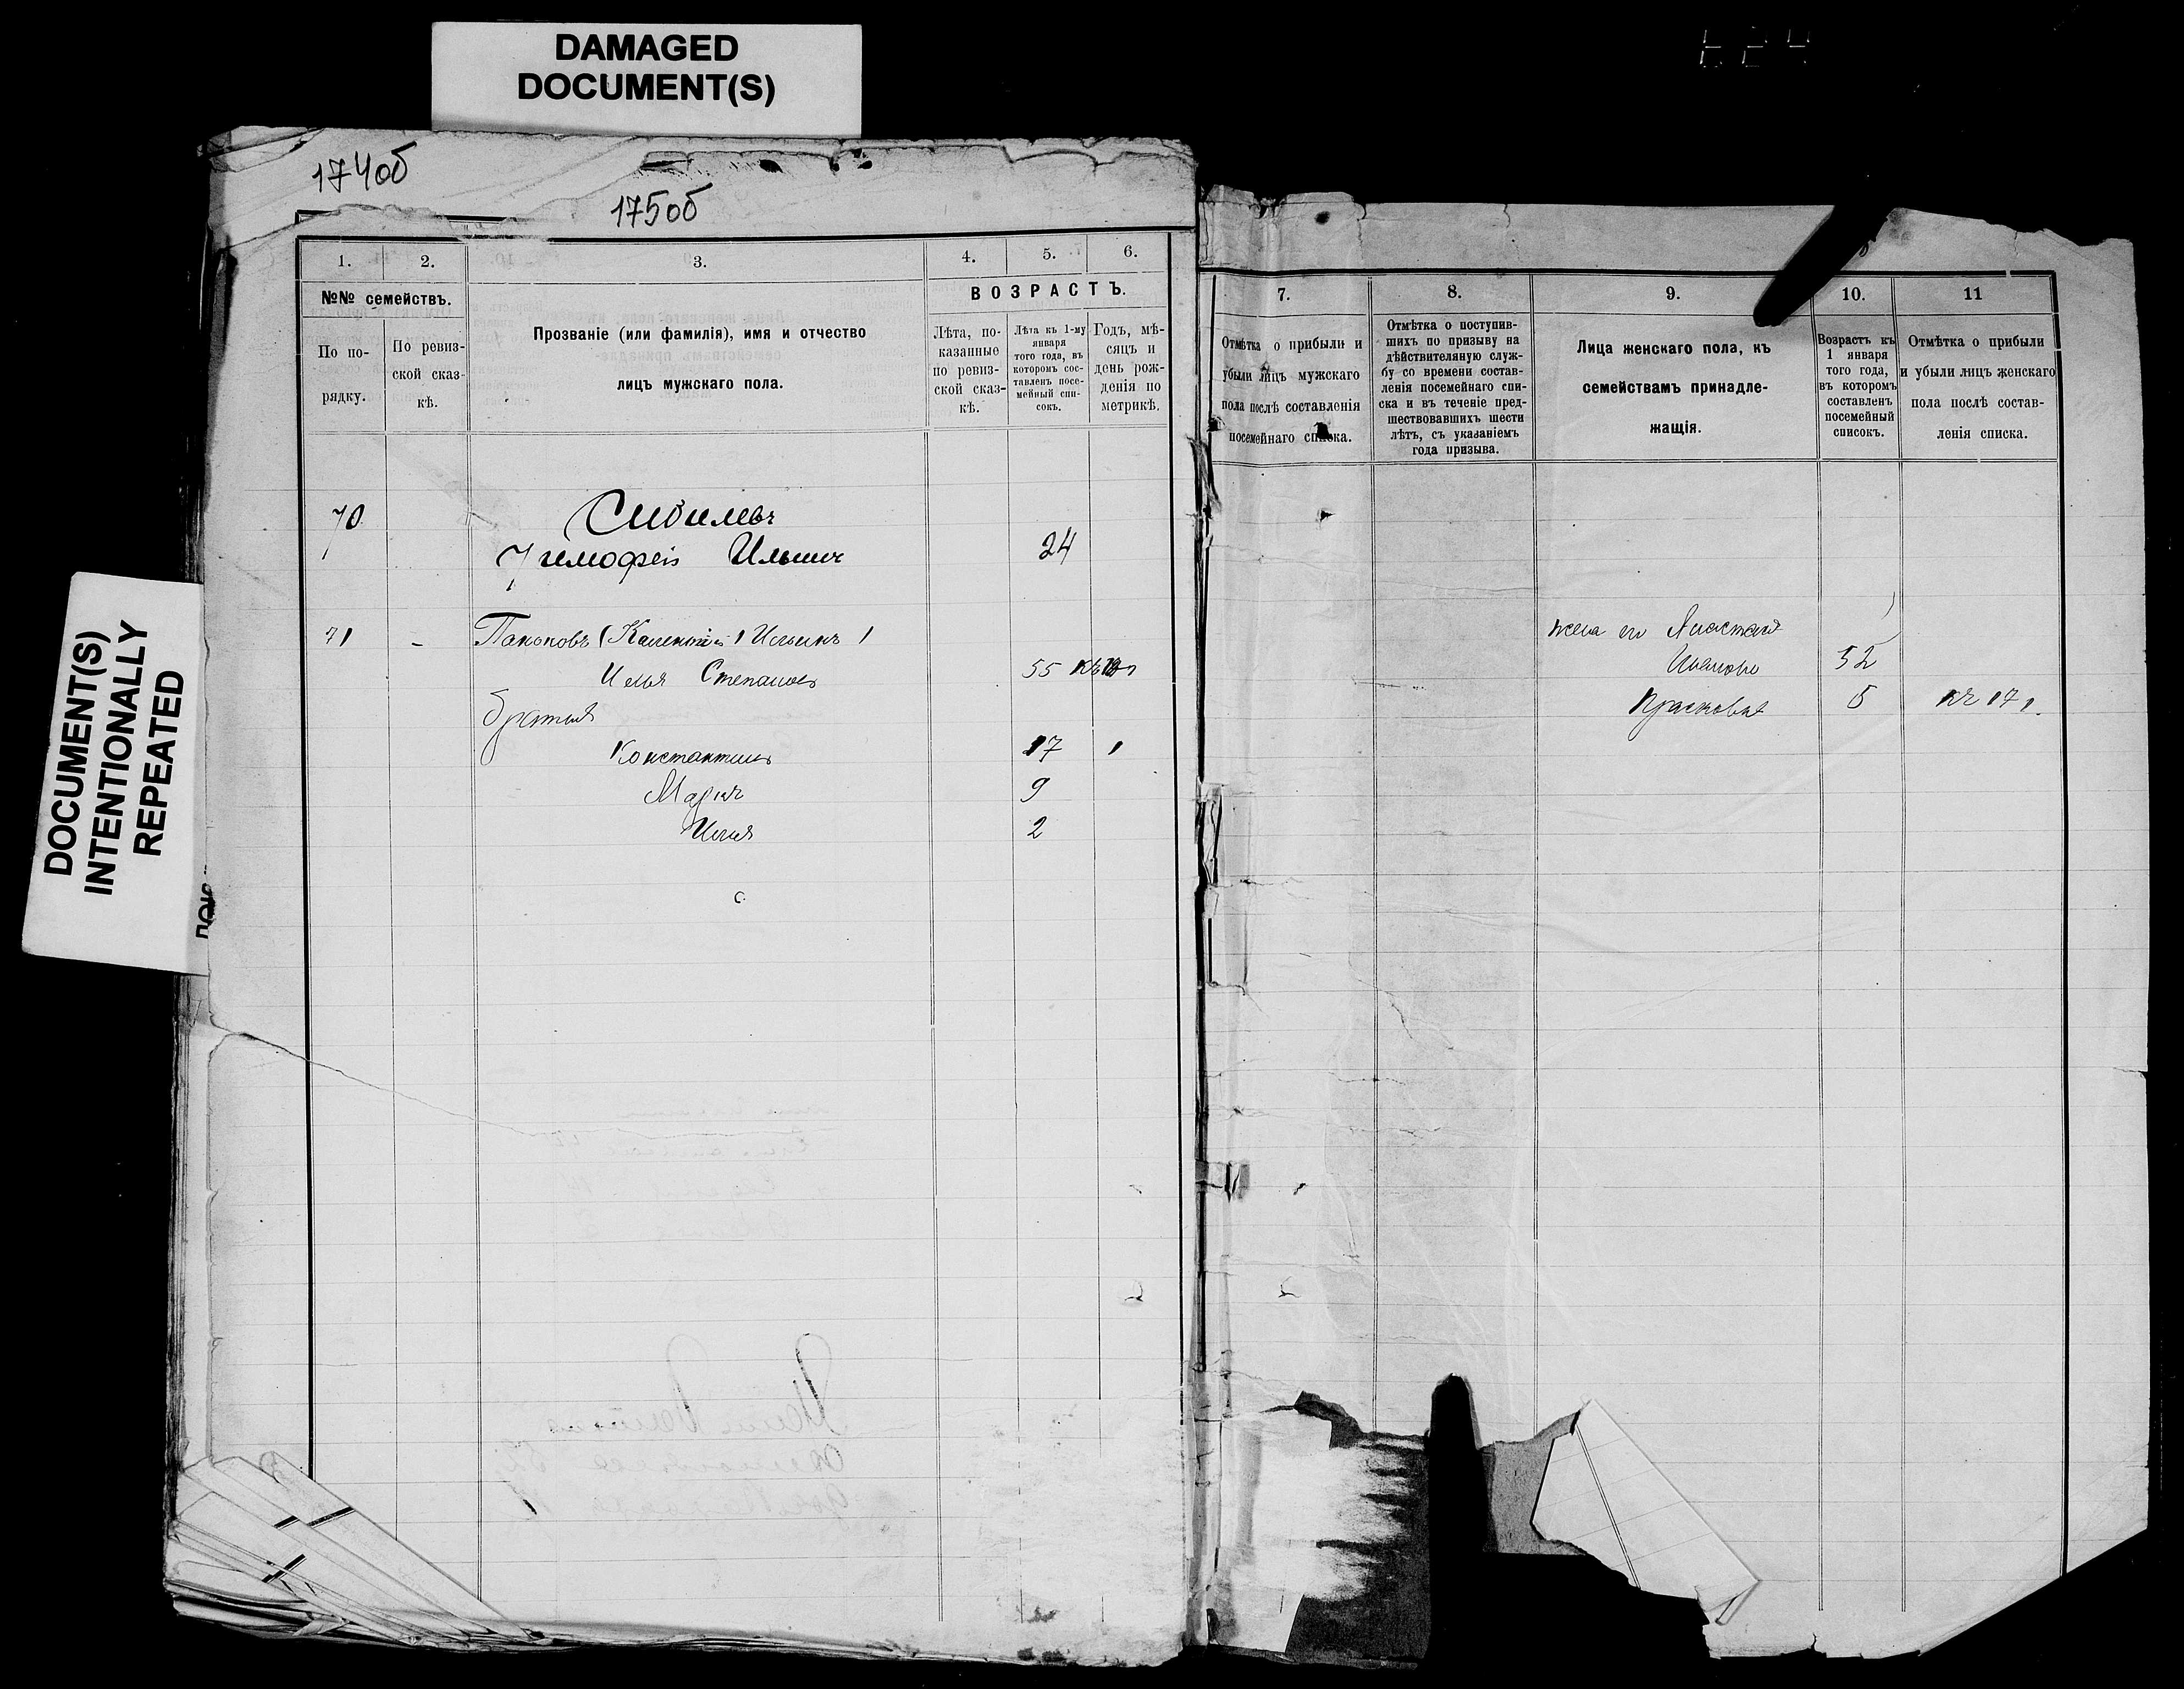 DAMAGED
DOCUMENT(S)
DOCUMENT(S)
INTENTIONALLY
REPEATED
174об
175об
1.
2.
3.
4.
5.
6.
№№ семействъ.
По по-
рядку.
По ревиз-
ской сказ-
кѣ.
Прозваніе (или фамилія), имя и отчество
лицъ мужскаго пола.
ВОЗРАСТЪ.
Лѣта, по-
казанные
по ревиз-
ской сказ-
кѣ.
Лѣта къ 1-му
января
того года, въ
которомъ сос-
тавленъ посе-
мейный спи-
сокъ.
Годъ, мѣ-
сяцъ и
день рож-
денія по
метрикѣ.
70
Сивилевъ
Тимофей Ильинъ 24
71 - Паньковъ Ильинъ
Илья Степановъ 55
братья
Константинъ 17
Маркъ 9
Илья 2
7.
8.
9.
10.
11
Отмѣтка о прибыли и
убыли лицъ мужскаго
пола послѣ составленія
посемейнаго списка.
Отмѣтка о поступив-
шихъ по призыву на
дѣйствителяную служ-
бу со времени состав-
ленія посемейнаго спи-
ска и въ теченіе пред-
шествовавшихъ шести
лѣтъ, съ указаніемъ
года призыва.
Лица женскаго пола, къ
семействамъ принадле-
жащія.
Возрастъ къ
1 января
того года,
въ которомъ
составленъ
посемейный
списокъ.
Отмѣтка о прибыли
и убыли лицъ женскаго
пола послѣ состав-
ленія списка.
жена его Анастасія
Иванова 52
Прасковья 5